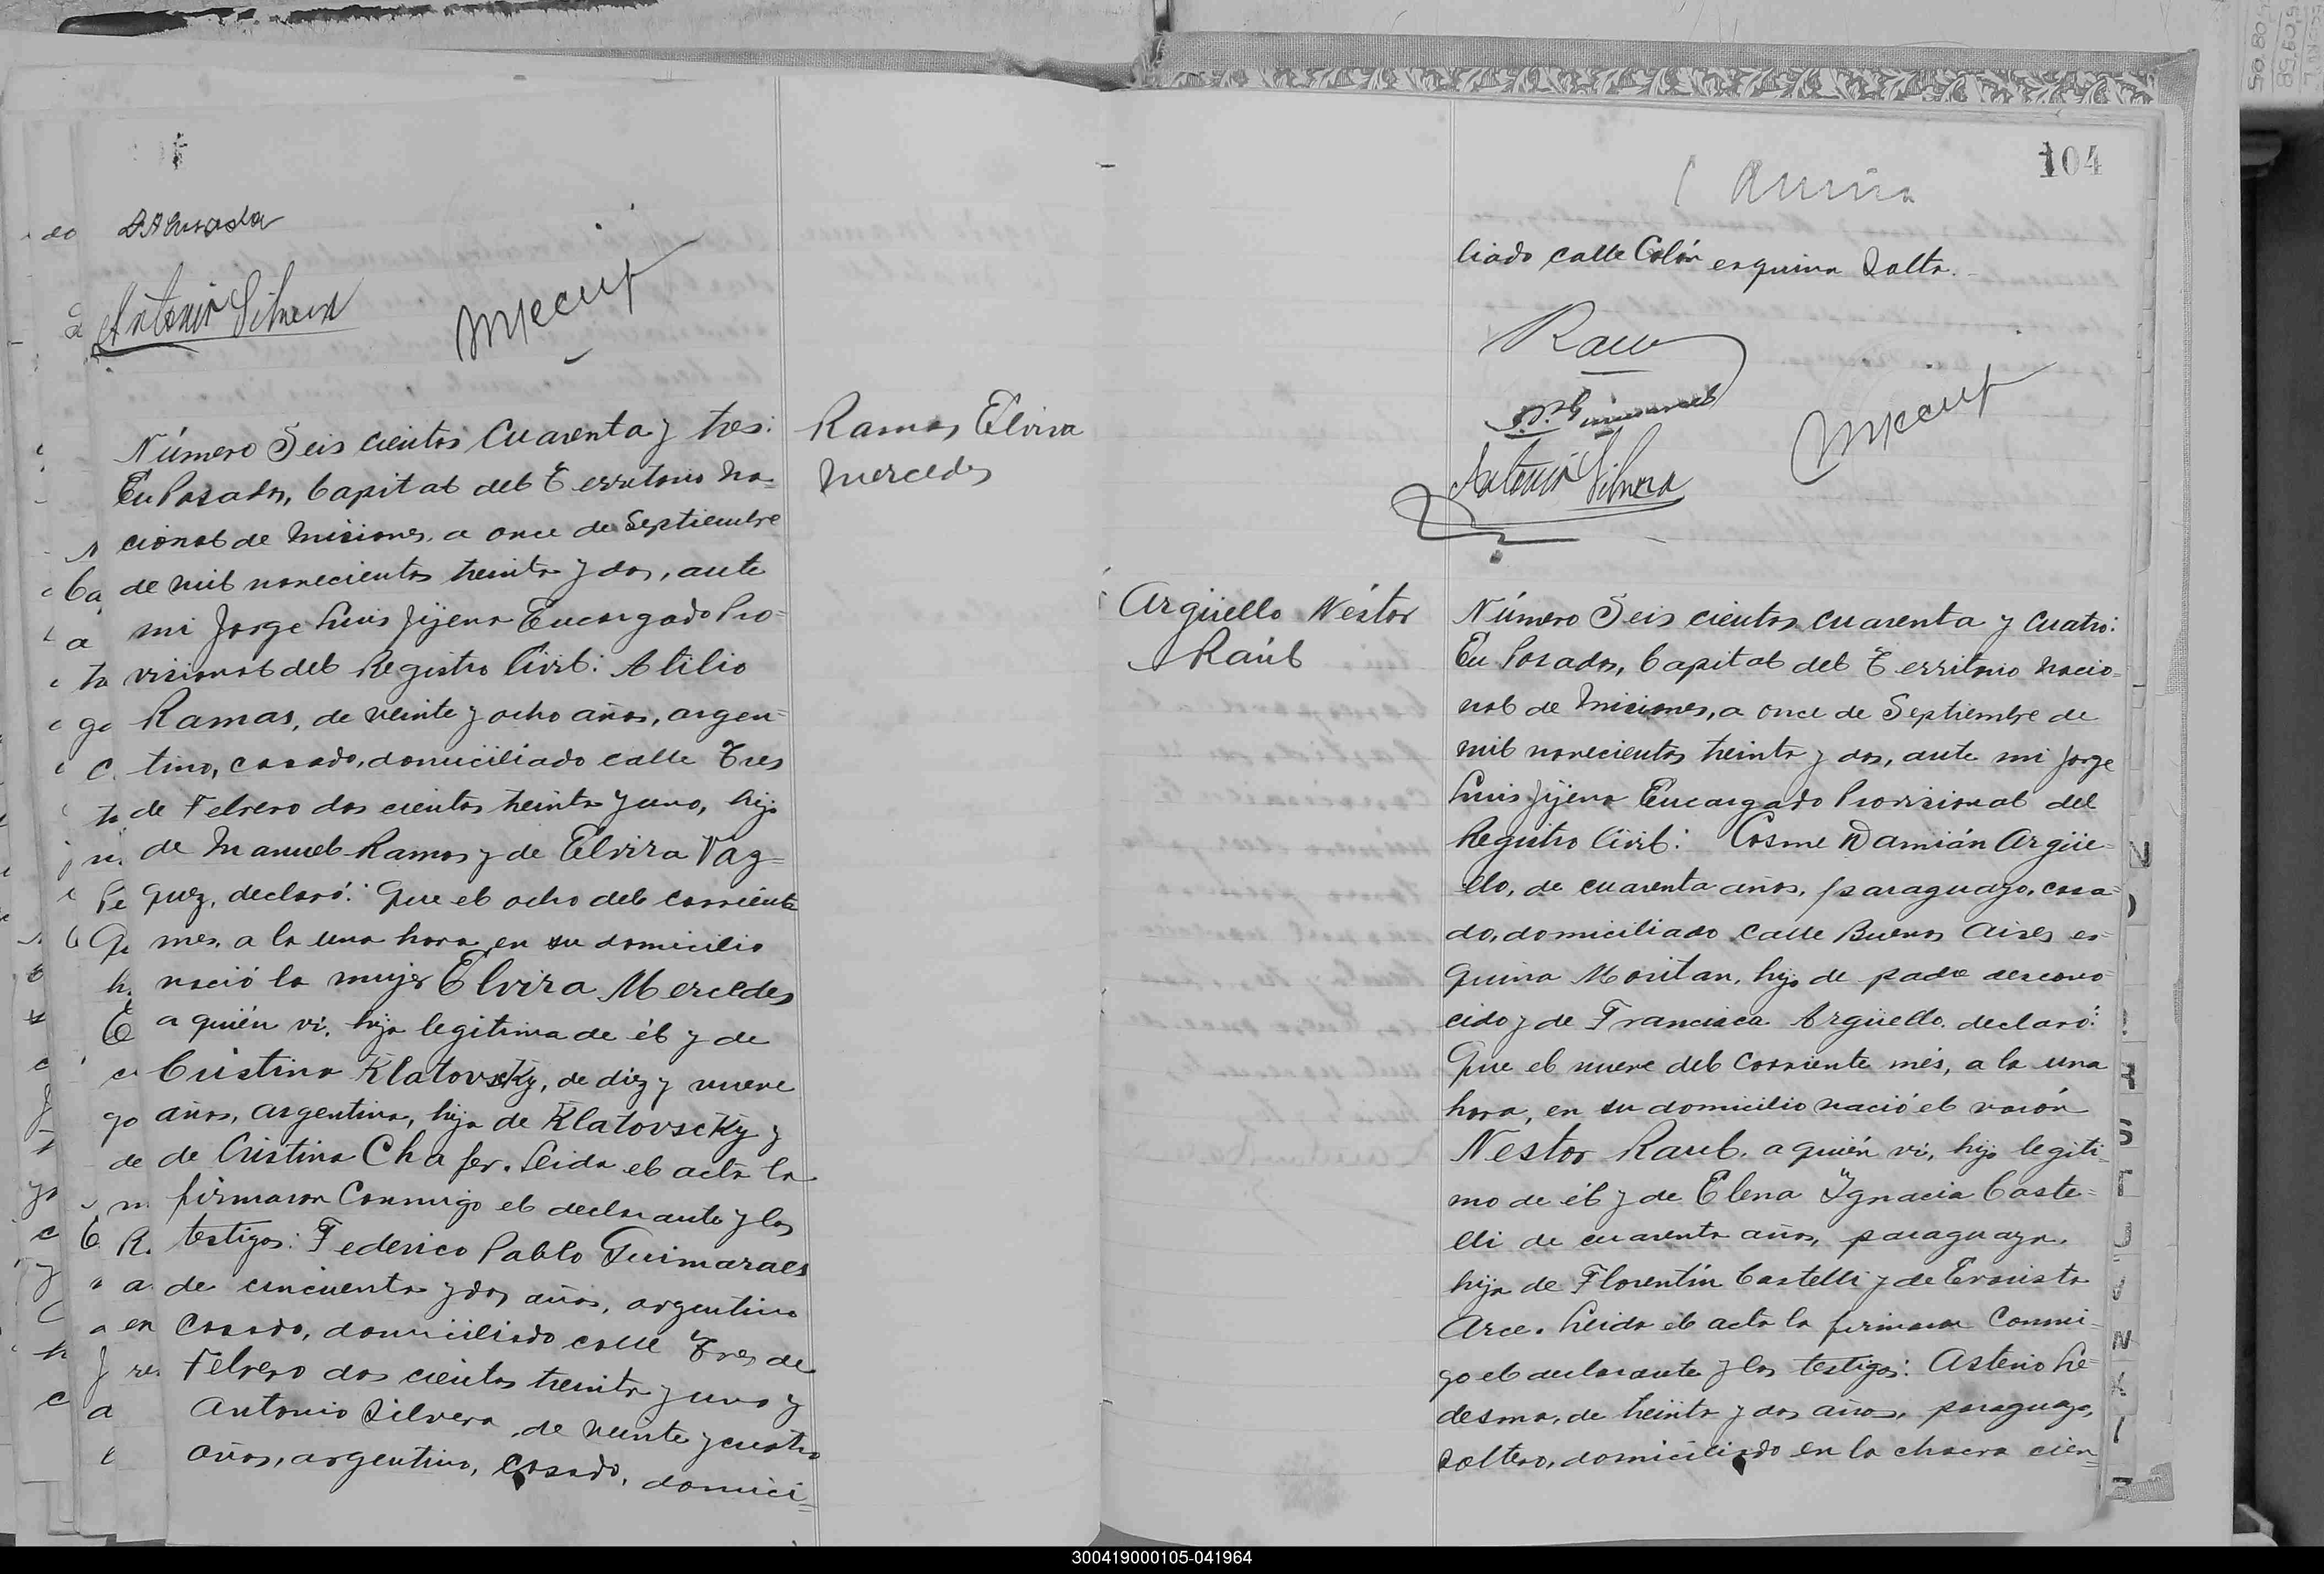 Antonio Silvera
Número Seis cientos Cuarenta y tres:
En Posadas, Capital del Territorio Na=
cional de Misiones, a once de Septiembre
de mil novecientos treinta y dos, ante
mi Jorge Luis Jijena Encargado Pro=
visional del Registro Civil: Atilio
Ramos, de veinte y ocho años, argen=
tino, casado, domiciliado calle Tres
de Febrero dos cientos treinta y uno, hijo
de Manuel Ramos y de Elvira Vaz=
quez, declaró: Que el ocho del corriente
mes, a la una hora, en su domicilio
nació la mujer Elvira Mercedes
a quién vi, hija legitima de él y de
Cristina Klatovscky, de diez y nueve
años, argentina, hija de Klatovscky y
de Cristina Chafer. Leida el acta la
firmaron Conmigo el declarante y los
testigos: Federico Pablo Guimaraes
de cincuenta y dos años, argentino
Casado, domiciliado calle Tres de
Febrero dos cientos treinta y uno y
Antonio Silvera, de veinte y cuatro
años, argentino, Casado, domici=
Ramos, Elvira
Mercedes
104
liado calle Colón esquina Salta.
Antonio Silvera
Argüello Néstor
Raúl
Número Seis cientos cuarenta y cuatro:
En Posadas, Capital del Territorio Nacio=
nal de Misiones, a once de Septiembre de
mil novecientos treinta y dos, ante mi Jorge
Luis Jijena Encargado Provisional del
Registro Civil: Cosme Damián Argüe=
llo, de cuarenta años, paraguayo, casa=
do, domiciliado calle Buenos Aires es=
quina Moritan, hijo de padre descono=
cido y de Francisca Argüello. declaró:
Que el nueve del Corriente més, a la una
hora, en su domicilio nació el varón
Néstor Raúl, a quién vi, hijo legiti=
mo de él y de Elena Ygnacia Caste=
lli de cuarenta años, paraguaya,
hija de Florentín Castelli y de Evarista
Arce. Leida el acta la firmaron Conmi=
go el declarante y los testigos: Asterio Le=
desma, de treinta y dos años, paraguayo,
soltero, domiciliado en la chacra cien=
300419000105-041964